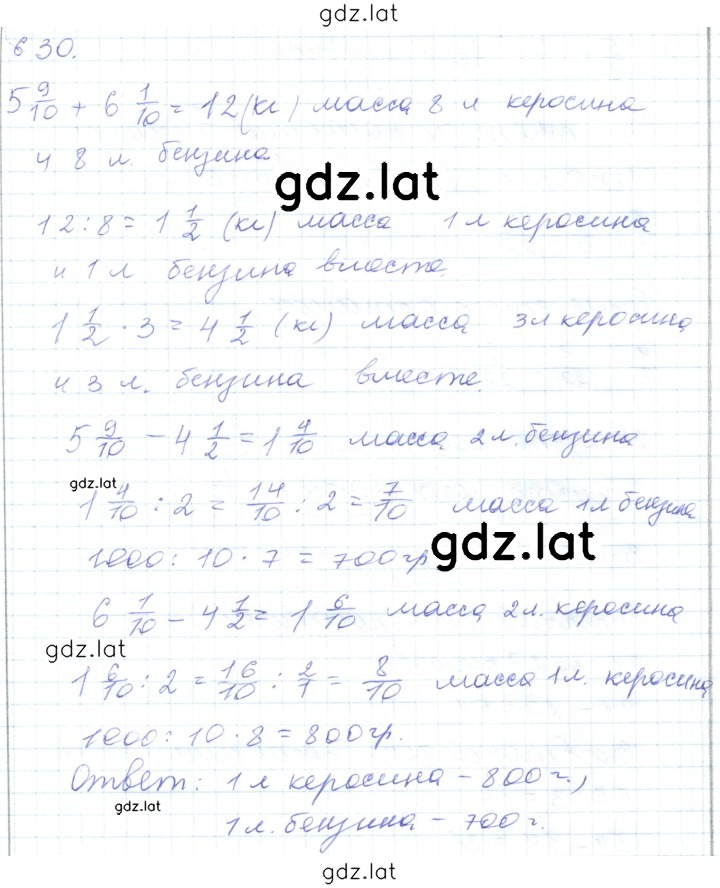 gdz.lat
630.
5 9/10 + 6 1/10 = 12 (кг) масса 8 л керосина
и 8 л. бензина
gdz.lat
12 : 8 = 1 1/2 (кг) масса 1 л керосина
и 1 л бензина вместе.
1 1/2 · 3 = 4 1/2 (кг) масса 3 л керосина
и 3 л. бензина вместе.
5 9/10 - 4 1/2 = 1 4/10 масса 2 л. бензина
gdz.lat
1 4/10 : 2 = 14/10 : 2 = 7/10 масса 1 л бензина
1000 : 10 · 7 = 700 гр
gdz.lat
6 1/10 - 4 1/2 = 1 6/10 масса 2 л. керосина
gdz.lat
1 6/10 : 2 = 16/10 : 2/1 = 8/10 масса 1 л. керосина
1000 : 10 · 8 = 800 гр.
Ответ: 1 л керосина - 800 г.,
gdz.lat
1 л. бензина - 700 г.
gdz.lat